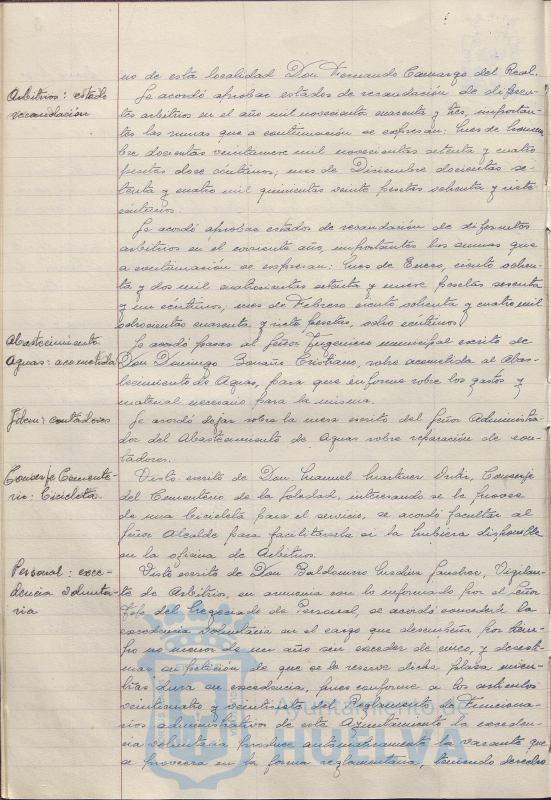 no de esta localidad Don Fernando Camargo del Real.
Arbitrios: estado
recaudación
Se acordó aprobar estados de recaudación de diferen-
tes arbitrios en el año mil novecientos cuarenta y tres, importan-
tes las sumas que a continuación se expresan: mes de Noviem-
bre doscientas veintinueve mil novecientas setenta y cuatro
pesetas doce céntimos; mes de Diciembre doscientas se-
tenta y cuatro mil quinientas veinte pesetas ochenta y siete
céntimos.
Se acordó aprobar estados de recaudación de diferentes
arbitrios en el corriente año, importantes las sumas que
a continuación se expresan: mes de Enero, ciento ochen-
ta y dos mil ochocientas setenta y nueve pesetas sesenta
y un céntimos; mes de Febrero ciento ochenta y cuatro mil
ochocientas cuarenta y siete pesetas, ocho céntimos.
Abastecimiento
Aguas: acometida
Se acordó pasar al Señor Ingeniero municipal escrito de
Don Domingo Cristiano, sobre acometida al Abas-
tecimiento de Aguas, para que informe sobre los gastos y
material necesario para la misma.
Idem: contadores
Se acordó dejar sobre la mesa escrito del Señor Administra-
dor del Abastecimiento de Aguas sobre reparación de con-
tadores.
Conserje Cemente-
rio: Bicicleta
Visto escrito de Don Manuel Martínez, Conserje
del Cementerio de la Soledad, interesando se le provea
de una bicicleta para el servicio, se acordó facultar al
Señor Alcalde para facilitársela si la hubiera disponible
en la oficina de Arbitrios.
Personal: exce-
dencia volunta-
ria
Visto escrito de Don Baldomero Medina, Vigilan-
te de Arbitrios, en armonía con lo informado por el Señor
Jefe del Negociado de Personal, se acordó concederle la
excedencia voluntaria en el cargo que desempeña por tiem-
po no menor de un año sin exceder de cinco, y desesti-
mar su petición de que se le reserve dicha plaza mien-
tras dura su excedencia, pues conforme a los artículos
veinticuatro y veintisiete del Reglamento de Funciona-
rios administrativos de este Ayuntamiento la exceden-
cia voluntaria produce automáticamente la vacante que
se proveerá en la forma reglamentaria, teniendo derecho
Ayuntamiento de
HUELVA